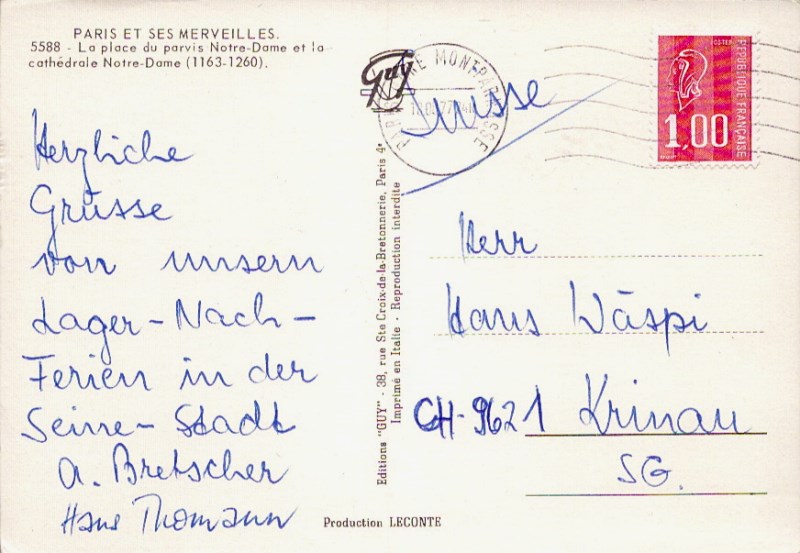 PARIS ET SES MERVEILLES.
5588 - La place du parvis Notre-Dame et la
cathédrale Notre-Dame (1163-1260).
Herzliche
Grüsse
von unsern
Lager-Nach-
Ferien in der
Seine-Stadt
A. Bretscher
Hans Thomann
Guy
MONTPARNASSE
Suisse
RÉPUBLIQUE FRANÇAISE
1,00
Herr
Hans Wäspi
CH-9621 Krinau
SG.
Editions "GUY" - 38, rue Ste Croix-de-la-Bretonnerie, Paris 4e
Imprimé en Italie - Reproduction interdite
Production LECONTE